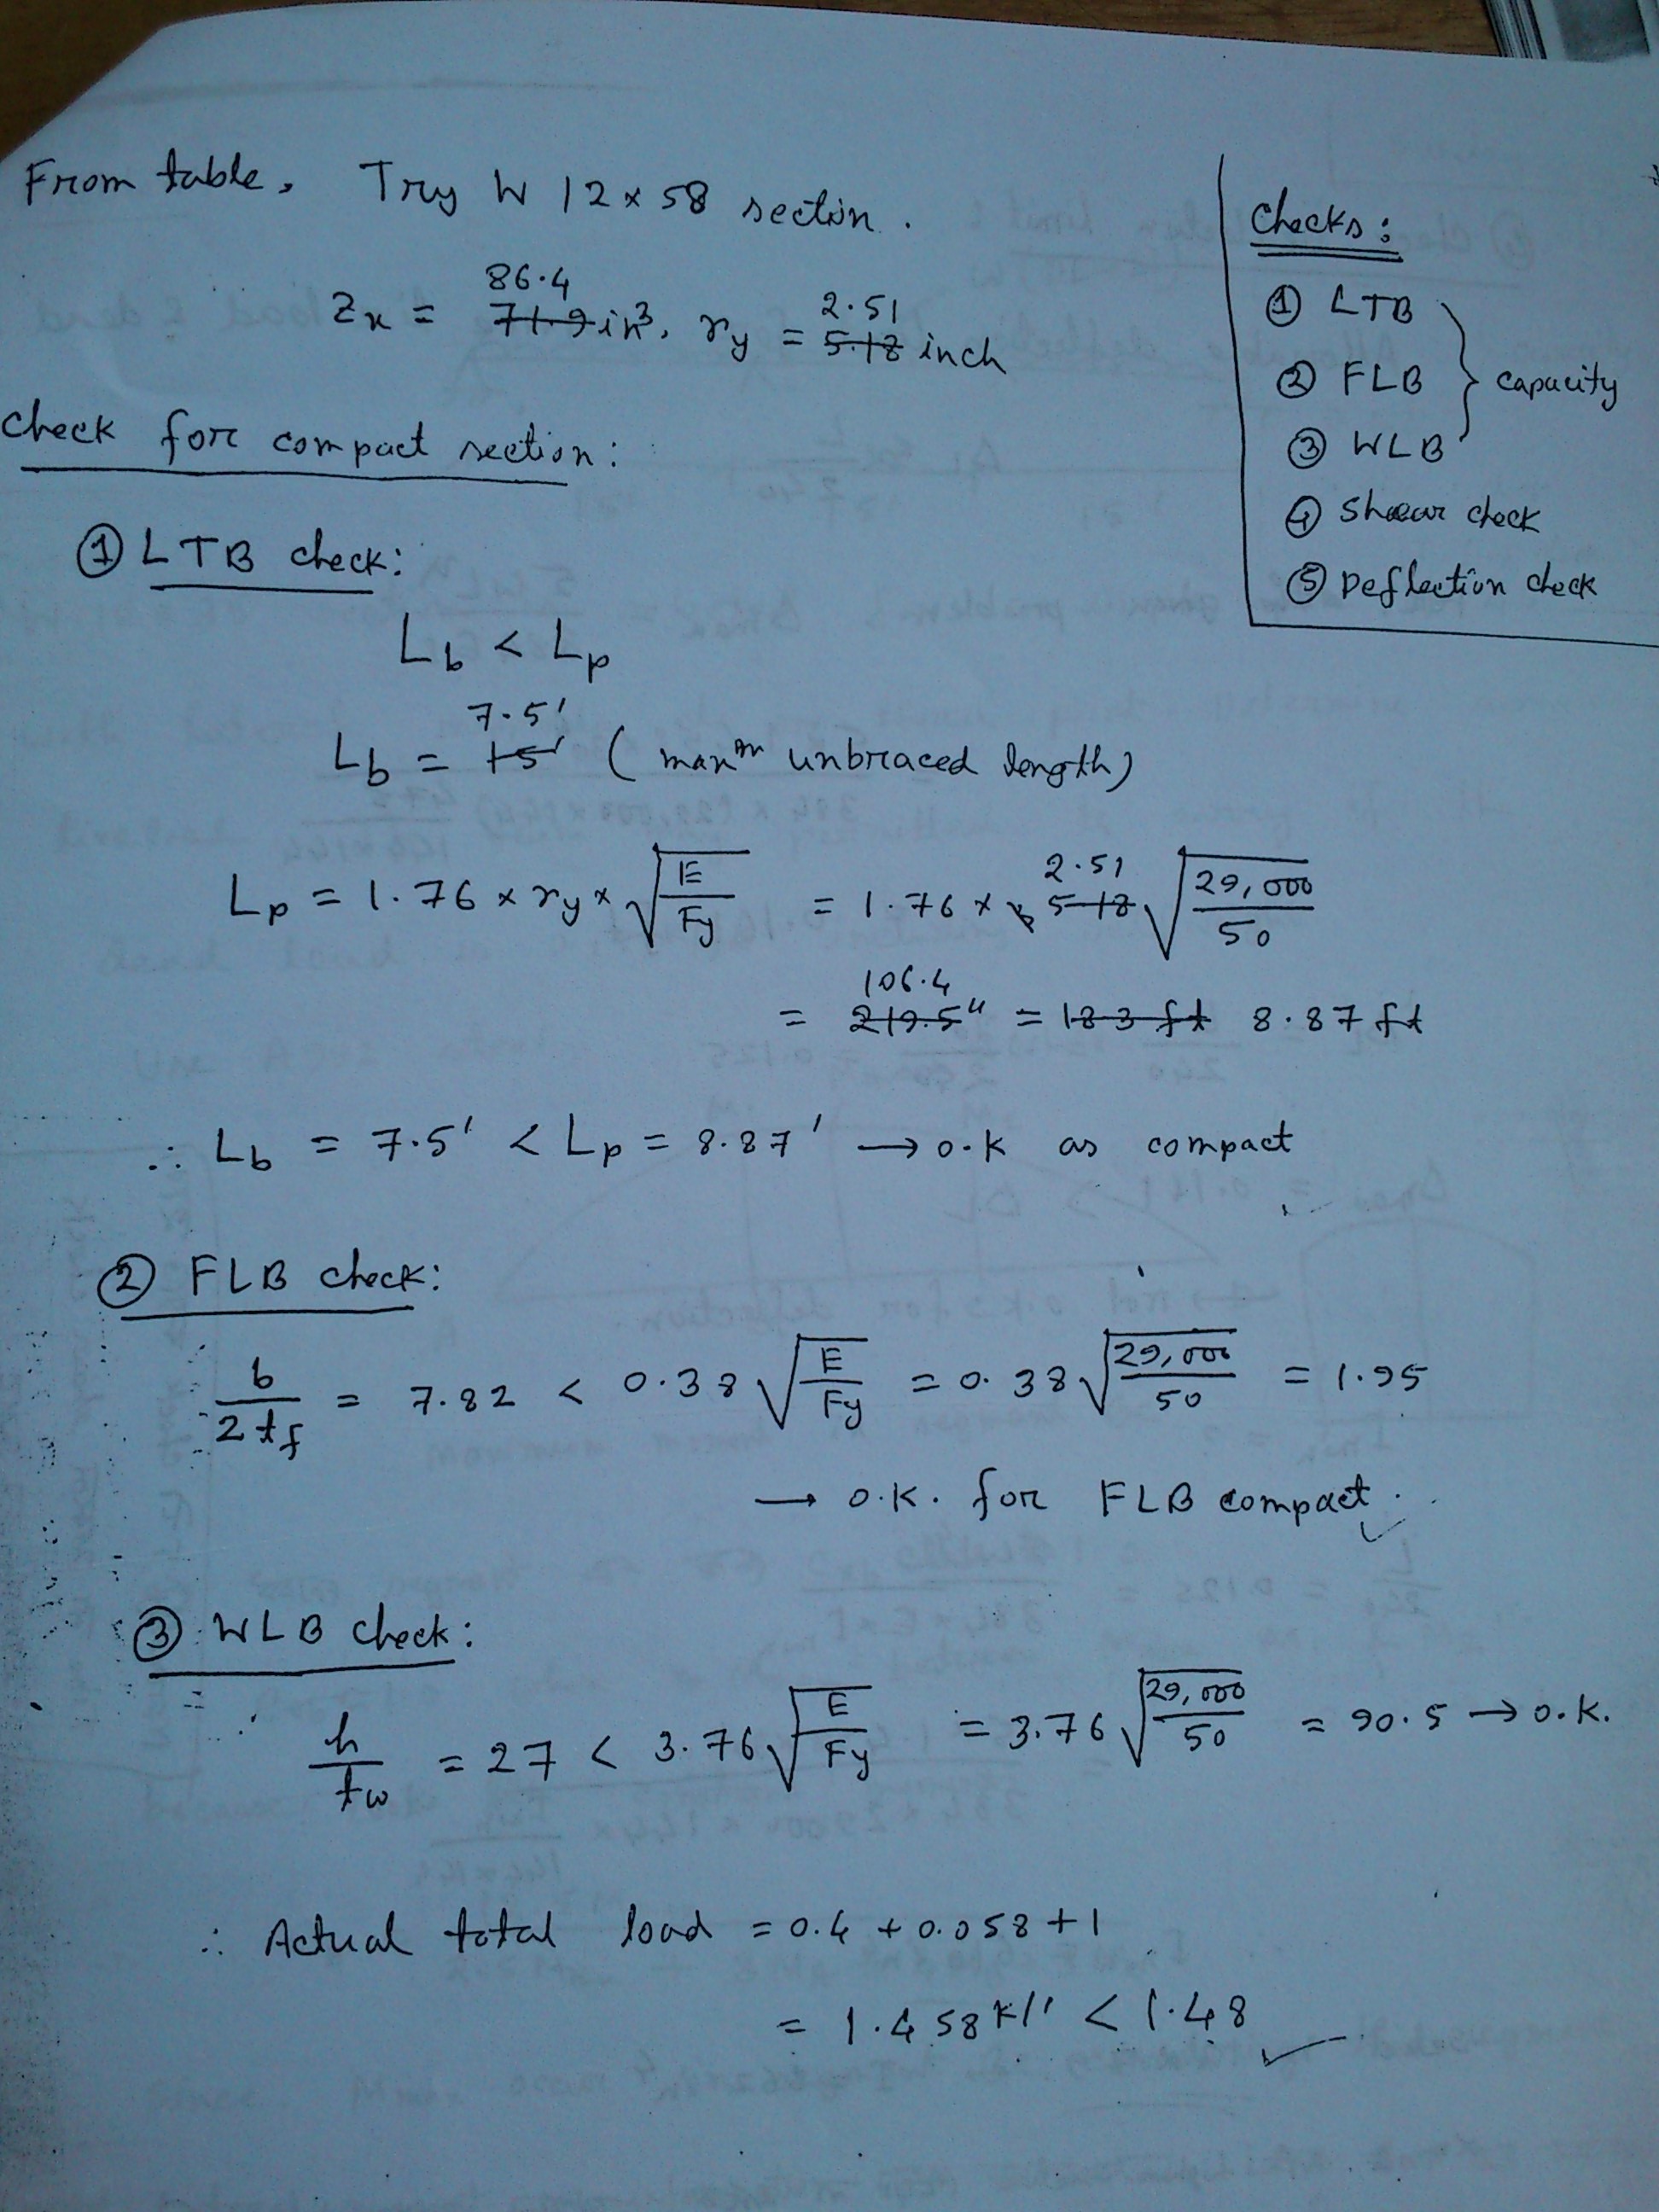 From table, Try W 12 x 58 section.
86.4 2.51
Zx = 71.9 in³, ry = 5.18 inch
Checks:
① LTB
② FLB } capacity
③ WLB
④ Shear check
⑤ Deflection check
Check for compact section:
① LTB check:
Lb < Lp
7.5'
Lb = 15' (maxm unbraced length)
2.51
Lp = 1.76 x ry x √(E/Fy) = 1.76 x 5.18 √(29,000/50)
106.4
= 219.5" = 183 ft 8.87 ft
∴ Lb = 7.5' < Lp = 8.87' → O.K as compact
② FLB check:
b/2tf = 7.82 < 0.38 √(E/Fy) = 0.38 √(29,000/50) = 1.95
→ O.K. for FLB compact.
③ WLB check:
h/tw = 27 < 3.76 √(E/Fy) = 3.76 √(29,000/50) = 90.5 → O.K.
∴ Actual total load = 0.4 + 0.058 + 1
= 1.458 K/' < 1.48 ✓